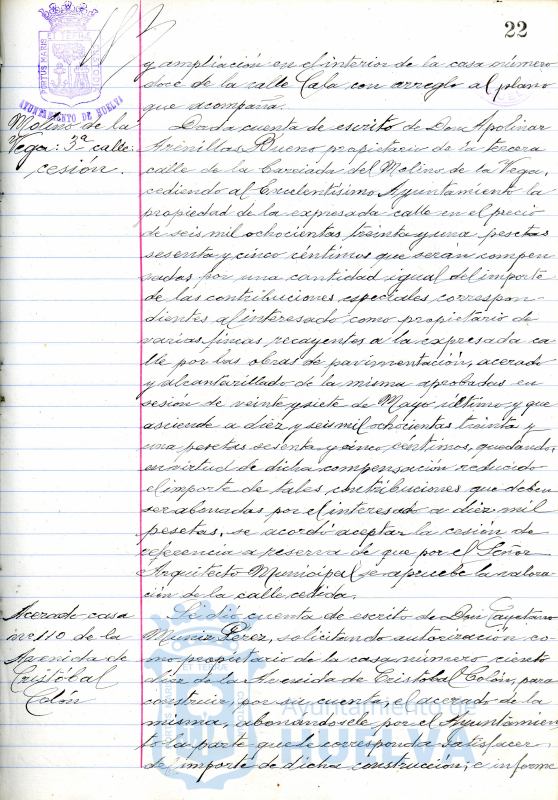 22
PORTUS MARIS
AYUNTAMIENTO DE HUELVA
y ampliación en el interior de la casa número
doce de la calle Cala con arreglo al plano
que acompaña.
Molino de la
Vega: 3ª calle:
cesión.
Dada cuenta de escrito de Don Apolinar
Arenillas Bueno propietario de la tercera
calle de la Barriada del Molino de la Vega,
cediendo al Excelentísimo Ayuntamiento la
propiedad de la expresada calle en el precio
de seis mil ochocientas treinta y una pesetas
sesenta y cinco céntimos que serán compen-
sadas por una cantidad igual del importe
de las contribuciones especiales correspon-
dientes al interesado como propietario de
varias fincas recayentes a la expresada ca-
lle por las obras de pavimentación, acerado
y alcantarillado de la misma aprobadas en
sesión de veinte y siete de Mayo último y que
asciende a diez y seis mil ochocientas treinta y
una pesetas sesenta y cinco céntimos, quedando,
en virtud de dicha compensación reducido
el importe de tales contribuciones que deben
ser abonadas por el interesado a diez mil
pesetas, se acordó aceptar la cesión de
referencia a reserva de que por el Señor
Arquitecto Municipal se apruebe la valora-
ción de la calle cedida.
Acerado casa
nº 110 de la
Avenida de
Cristóbal
Colón
Se dió cuenta de escrito de Don Cayetano
Muniz Pérez, solicitando autorización co-
mo propietario de la casa número ciento
diez de la Avenida de Cristobal Colón, para
construir por su cuenta el acerado de la
misma, abonándosele por el Ayuntamien-
to la parte que le corresponda satisfacer
del importe de dicha construcción, e informe
Ayuntamiento de
HUELVA